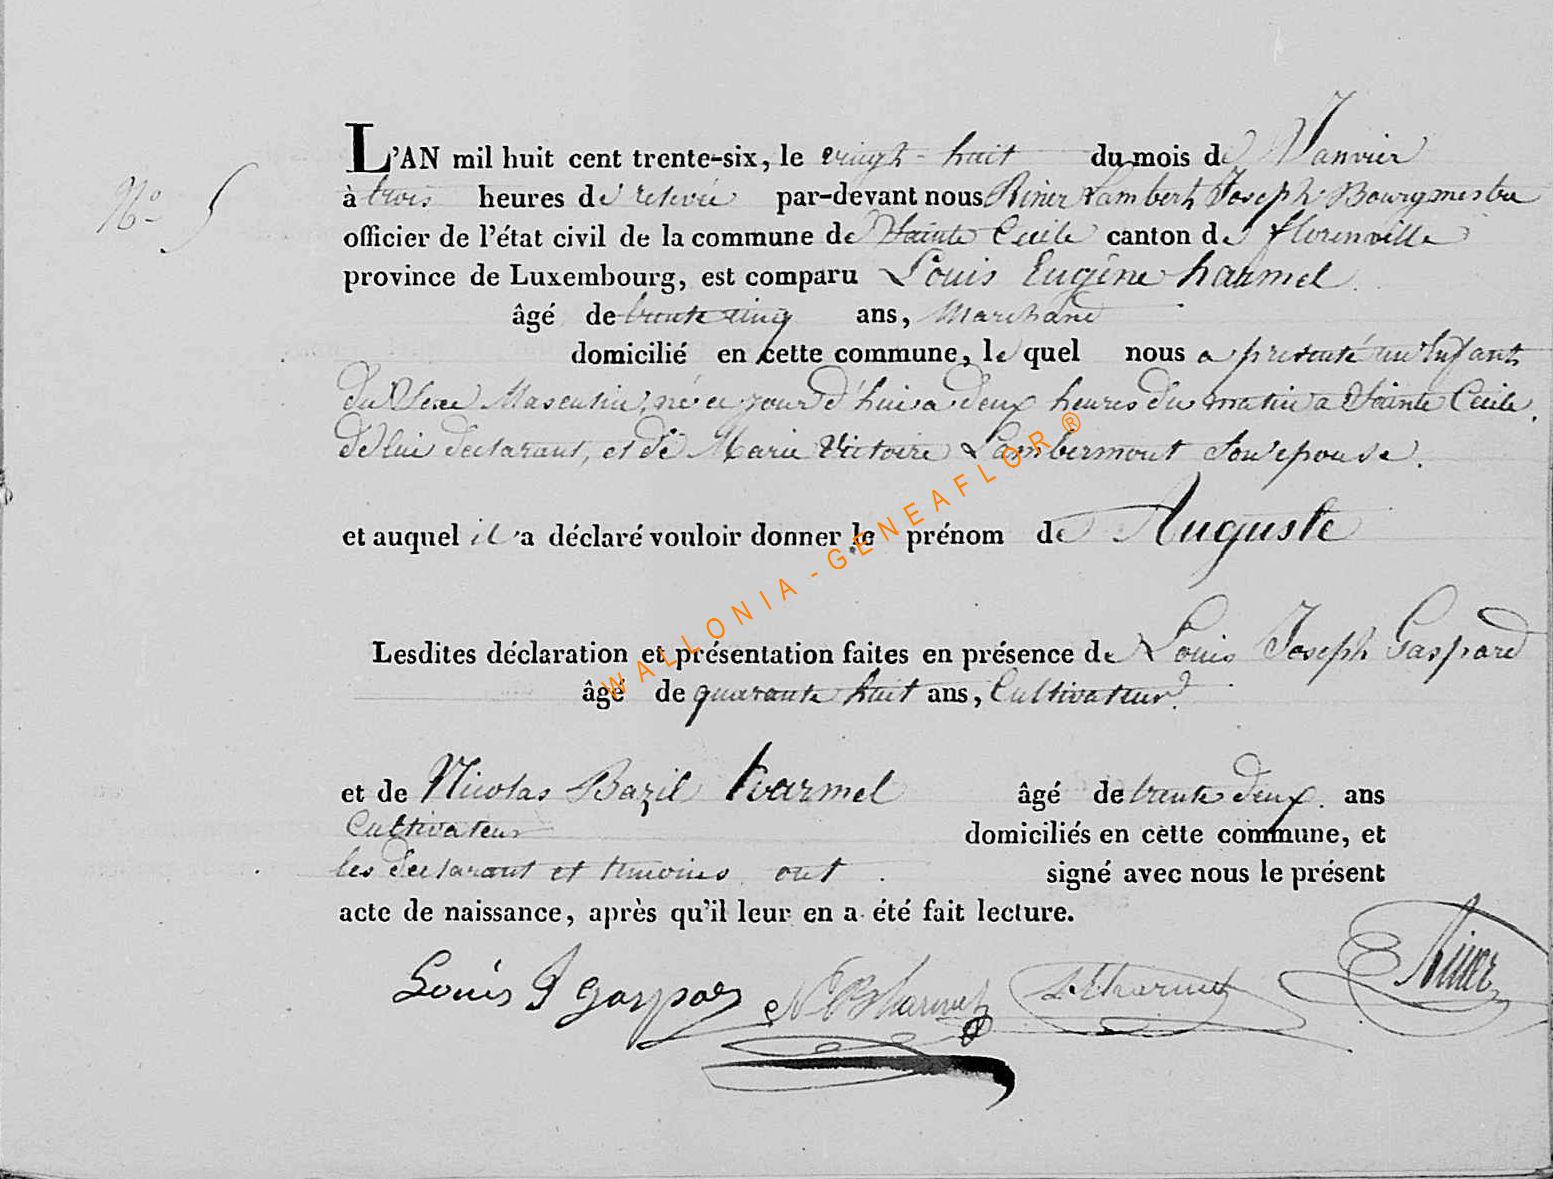 N° 5
L'AN mil huit cent trente-six, le vingt-huit du mois de Janvier
à trois heures de relevée par-devant nous Riner Lambert Joseph Bourgmestre
officier de l'état civil de la commune de Sainte Cecile canton de florenville
province de Luxembourg, est comparu Louis Eugène harmel
âgé de trente cinq ans, Marchand
domicilié en cette commune, le quel nous a presenté un Enfant
du Sexe Masculin, né ce jour d'hui a deux heures du matin a Sainte Cecile.
de lui declarant, et de Marie Victoire Lambermont son epouse.
et auquel il a déclaré vouloir donner le prénom de Auguste
Lesdites déclaration et présentation faites en présence de Louis Joseph Gaspard
âgé de quarante huit ans, Cultivateur
et de Nicolas Bazil harmel âgé de trente deux ans
Cultivateur domiciliés en cette commune, et
les declarant et temoins ont signé avec nous le présent
acte de naissance, après qu'il leur en a été fait lecture.
Louis J Gaspar NB harmel LE harmel Riner
WALLONIA-GENEAFLOR®